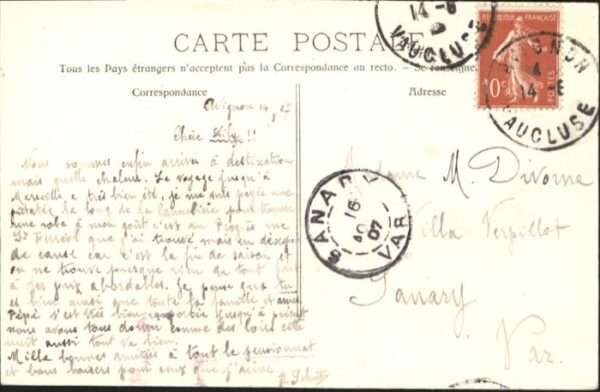 CARTE POSTALE
Tous les Pays étrangers n'acceptent pas la Correspondance au recto. — Se renseigner
Correspondance
Adresse
RÉPUBLIQUE FRANÇAISE
10c
POSTES
14 -8
VAUCLUSE
AVIGNON
4
14 -8
VAUCLUSE
SANARY
16
07
VAR
Avignon 14,
Chère
Nous sommes enfin arrivés à destination
mais quelle chaleur. Le voyage jusqu'à
Marseille a très bien été, je me suis payée une
le long de la Cannebière pour trouver
une robe à mon goût c'est au Progrès rue
St Ferréol que j'ai trouvé mais en désespoir
de cause car c'est la fin de saison et
on ne trouve presque rien du tout fait
à des prix abordables. Je pense que tu
es bien ainsi que toute ta famille et amies
Pépé s'est très bien comportée jusqu'à présent
nous avons tous dormi comme des loirs cette
nuit aussi tout va bien.
Mille bonnes amitiés à tout le pensionnat
et bons baisers pour ceux que j'aime
Madame M. Divorne
Villa Verpillot
Sanary
Var.